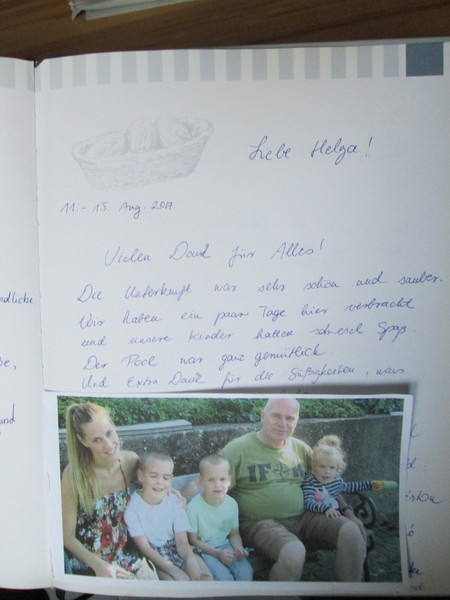 Liebe Helga!
11. - 15. Aug. 2017.
Vielen Dank für Alles!
Die Unterkunft war sehr schön und sauber.
Wir haben ein paar Tage hier verbracht
und unsere Kinder hatten Spaß.
Der Pool war ganz gemütlich
Und Extra Dank für die Süßigkeiten, was